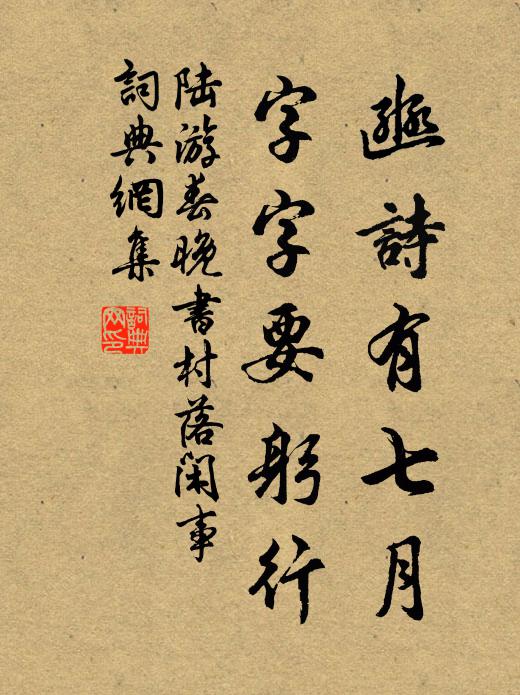 豳詩有七月
字字要躬行
陆游春晚書村落閑事
詞典網集
詞典网印